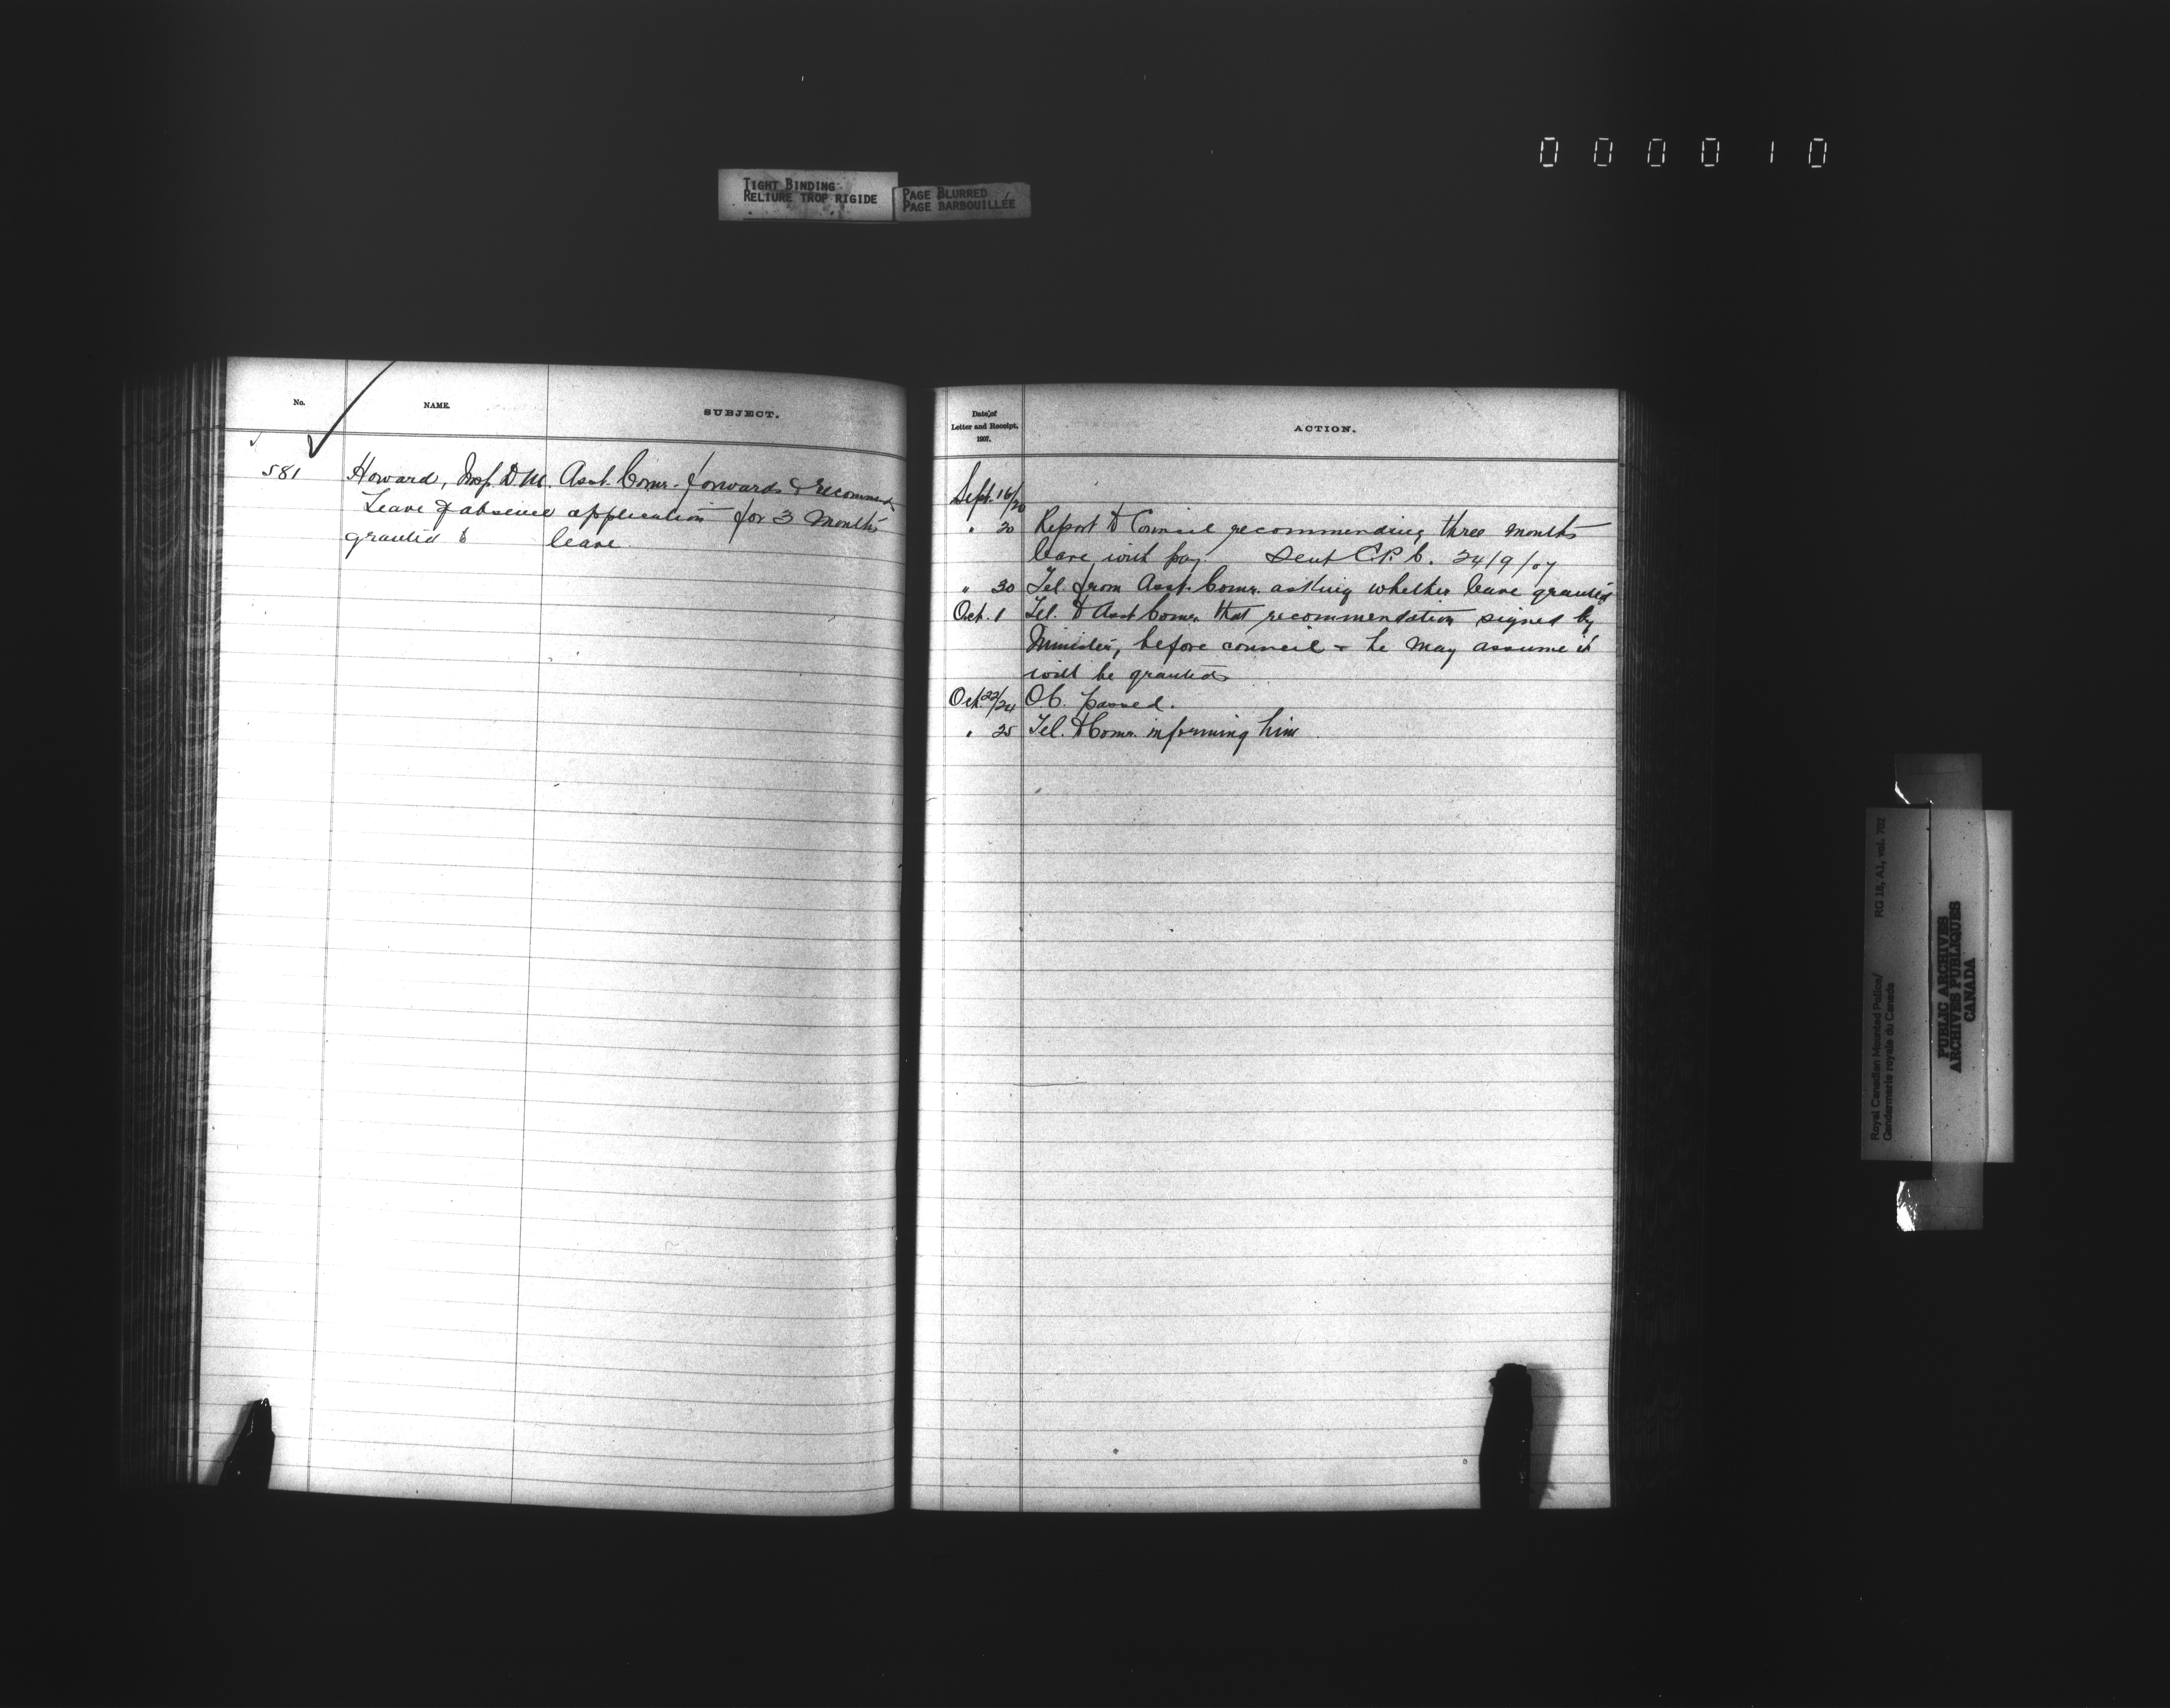 000010
TIGHT BINDING
RELIURE TROP RIGIDE
PAGE BLURRED
PAGE BARBOUILLÉE
No.
NAME.
SUBJECT.
581
Howard, Insp. D. M.
Leave of absence
granted to
Asst. Comr. forwards & recommends
application for 3 months
leave
Date of
Letter and Receipt.
1907.
ACTION.
Sept. 16/20
" 20 Report to Council recommending three months
leave with pay. Sent C.P.C. 24/9/07
" 30 Tel. from Asst. Comr. asking whether leave granted
Oct. 1 Tel. to Asst Comr. that recommendation signed by
Minister, before council - he may assume it
will be granted
Oct. 22/24 O.C. passed.
" 25 Tel. to Comr. informing him.
Royal Canadian Mounted Police/
Gendarmerie royale du Canada
RG 18, A1, vol. 702
PUBLIC ARCHIVES
ARCHIVES PUBLIQUES
CANADA